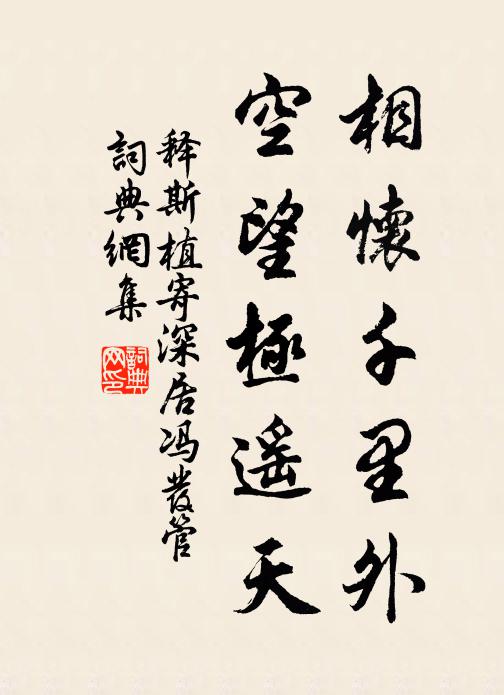 相懷千里外
空望極遥天
释斯植寄深居冯發管
詞典網集
詞典网印